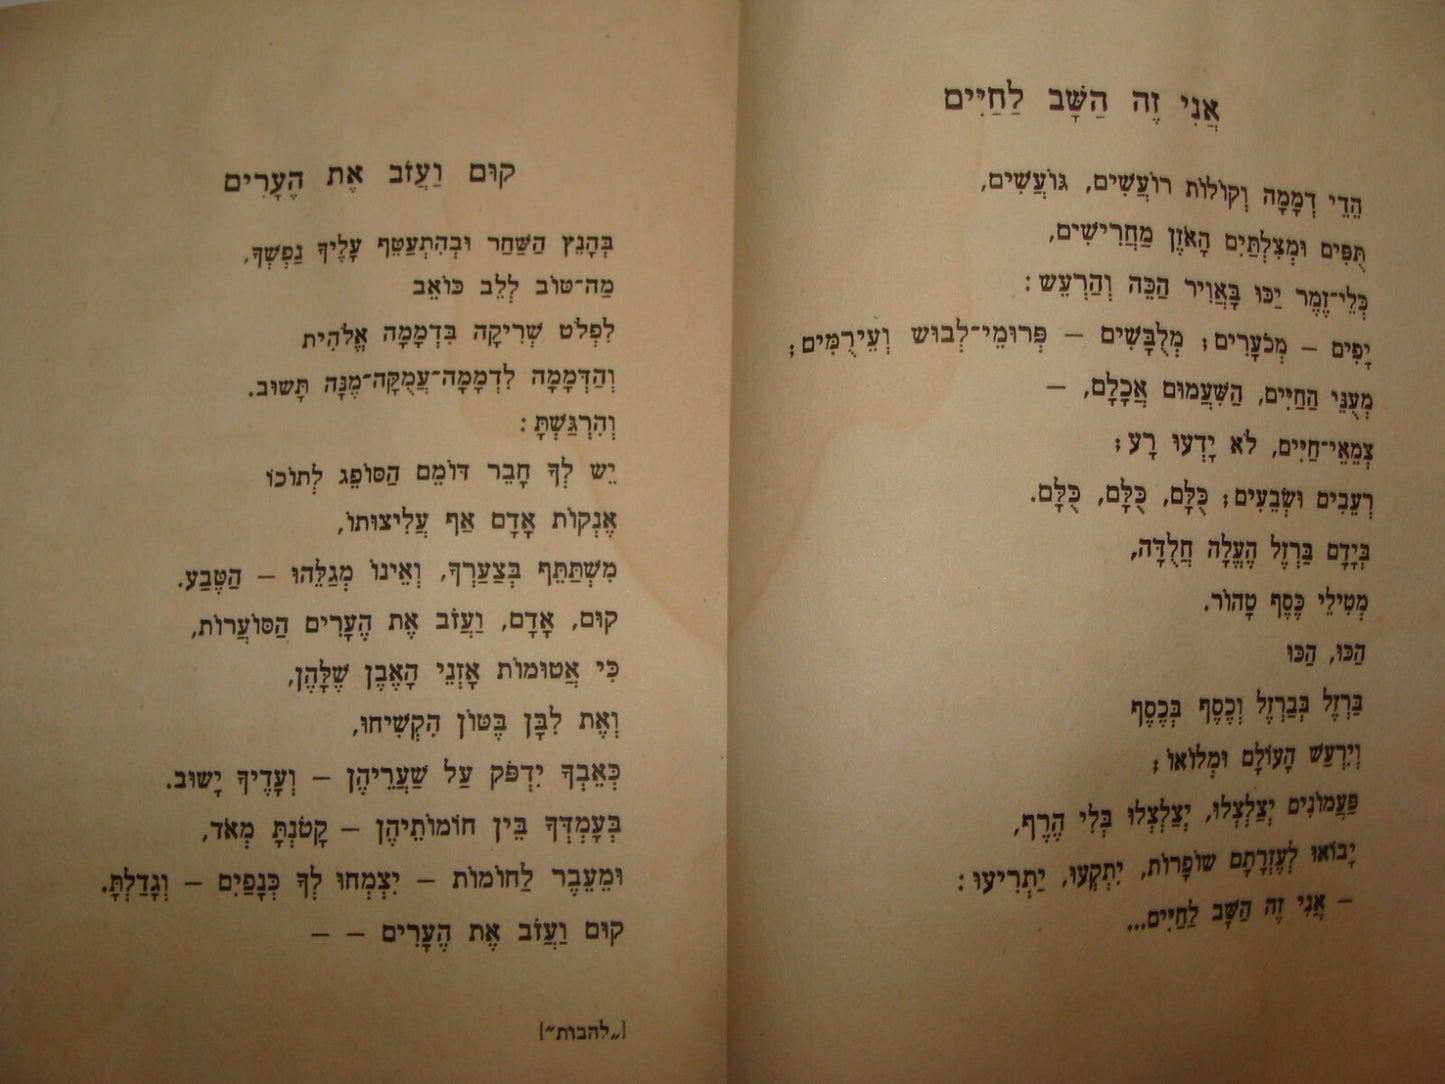 אֲנִי זֶה הַשָּׁב לַחַיִּים
הֲדֵי דְמָמָה וְקוֹלוֹת רוֹעֲשִׁים, גּוֹעֲשִׁים,
תֻּפִּים וּמְצִלְתַּיִם הָאֹזֶן מַחֲרִישִׁים,
כְּלֵי־זֶמֶר יַכּוּ בָּאֲוִיר הַכֵּה וְהַרְעֵשׁ:
יָפִים – מְכֹעָרִים; מְלֻבָּשִׁים – פְּרוּמֵי־לְבוּשׁ וְעֵירֻמִּים;
מְעֻנֵּי הַחַיִּים, הַשִּׁעֲמוּם אֲכָלָם, –
צְמֵאֵי־חַיִּים, לֹא יָדְעוּ רָע;
רְעֵבִים וּשְׂבֵעִים; כֻּלָּם, כֻּלָּם, כֻּלָּם.
בְּיָדָם בַּרְזֶל הֶעֱלָה חֲלֻדָּה,
מְטִילֵי כֶּסֶף טָהוֹר.
הַכּוּ, הַכּוּ
בַּרְזֶל בְּבַרְזֶל וְכֶסֶף בְּכֶסֶף
וְיִרְעַשׁ הָעוֹלָם וּמְלוֹאוֹ;
פַּעֲמוֹנִים יְצַלְצְלוּ, יְצַלְצְלוּ בְּלִי הֶרֶף,
יָבוֹאוּ לְעֶזְרָתָם שׁוֹפָרוֹת, יִתְקְעוּ, יַתְרִיעוּ:
– אֲנִי זֶה הַשָּׁב לַחַיִּים...
קוּם וַעֲזֹב אֶת הֶעָרִים
בְּהָנֵץ הַשַּׁחַר וּבְהִתְעַטֵּף עָלֶיךָ נַפְשְׁךָ,
מַה־טּוֹב לְלֵב כּוֹאֵב
לִפְלֹט שְׁרִיקָה בִּדְמָמָה אֱלֹהִית
וְהַדְּמָמָה לִדְמָמָה־עֲמֻקָּה־מִנָּהּ תָּשׁוּב.
וְהִרְגַּשְׁתָּ:
יֵשׁ לְךָ חָבֵר דּוֹמֵם הַסּוֹפֵג לְתוֹכוֹ
אֶנְקוֹת אָדָם אַף עֲלִיצוּתוֹ,
מִשְׁתַּתֵּף בְּצַעַרְךָ, וְאֵינוֹ מְגַלֵּהוּ – הַטֶּבַע.
קוּם, אָדָם, וַעֲזֹב אֶת הֶעָרִים הַסּוֹעֲרוֹת,
כִּי אֲטוּמוֹת אָזְנֵי הָאֶבֶן שֶׁלָּהֶן,
וְאֶת לִבָּן בֶּטּוֹן הִקְשִׁיחוּ,
כְּאֵבְךָ יִדְפֹּק עַל שַׁעֲרֵיהֶן – וְעָדֶיךָ יָשׁוּב.
בְּעָמְדְּךָ בֵּין חוֹמוֹתֵיהֶן – קָטֹנְתָּ מְאֹד,
וּמֵעֵבֶר לַחוֹמוֹת – יִצְמְחוּ לְךָ כְּנָפַיִם – וְגָדַלְתָּ.
קוּם וַעֲזֹב אֶת הֶעָרִים – –
[„להבות״]